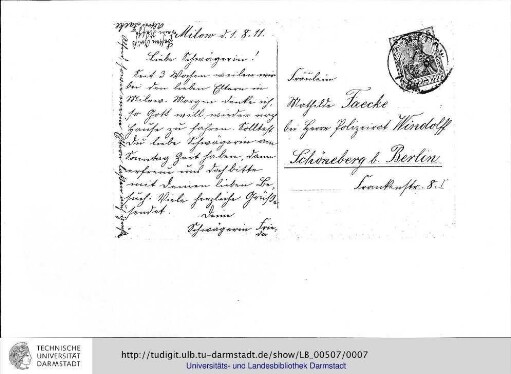 Milow d. 1. 8. 11.
Liebe Schwägerin!
Seit 3 Wochen weilen wir
bei den lieben Eltern in
Milow. Morgen denke ich
so Gott will wieder nach
Hause zu fahren. Solltest
Du liebe Schwägerin am
Sonntag Zeit haben, dann
erfreue uns doch bitte
mit Deinem lieben Be-
such. Viele herzliche Grüße
sendet
Deine
Schwägerin Frie-
da
Fräulein
Mathilde Faecke
bei Herrn Polizeirat Windolff
Schöneberg b. Berlin
Frankenstr. 8. I
TECHNISCHE
UNIVERSITÄT
DARMSTADT
http://tudigit.ulb.tu-darmstadt.de/show/LB_00507/0007
Universitäts- und Landesbibliothek Darmstadt